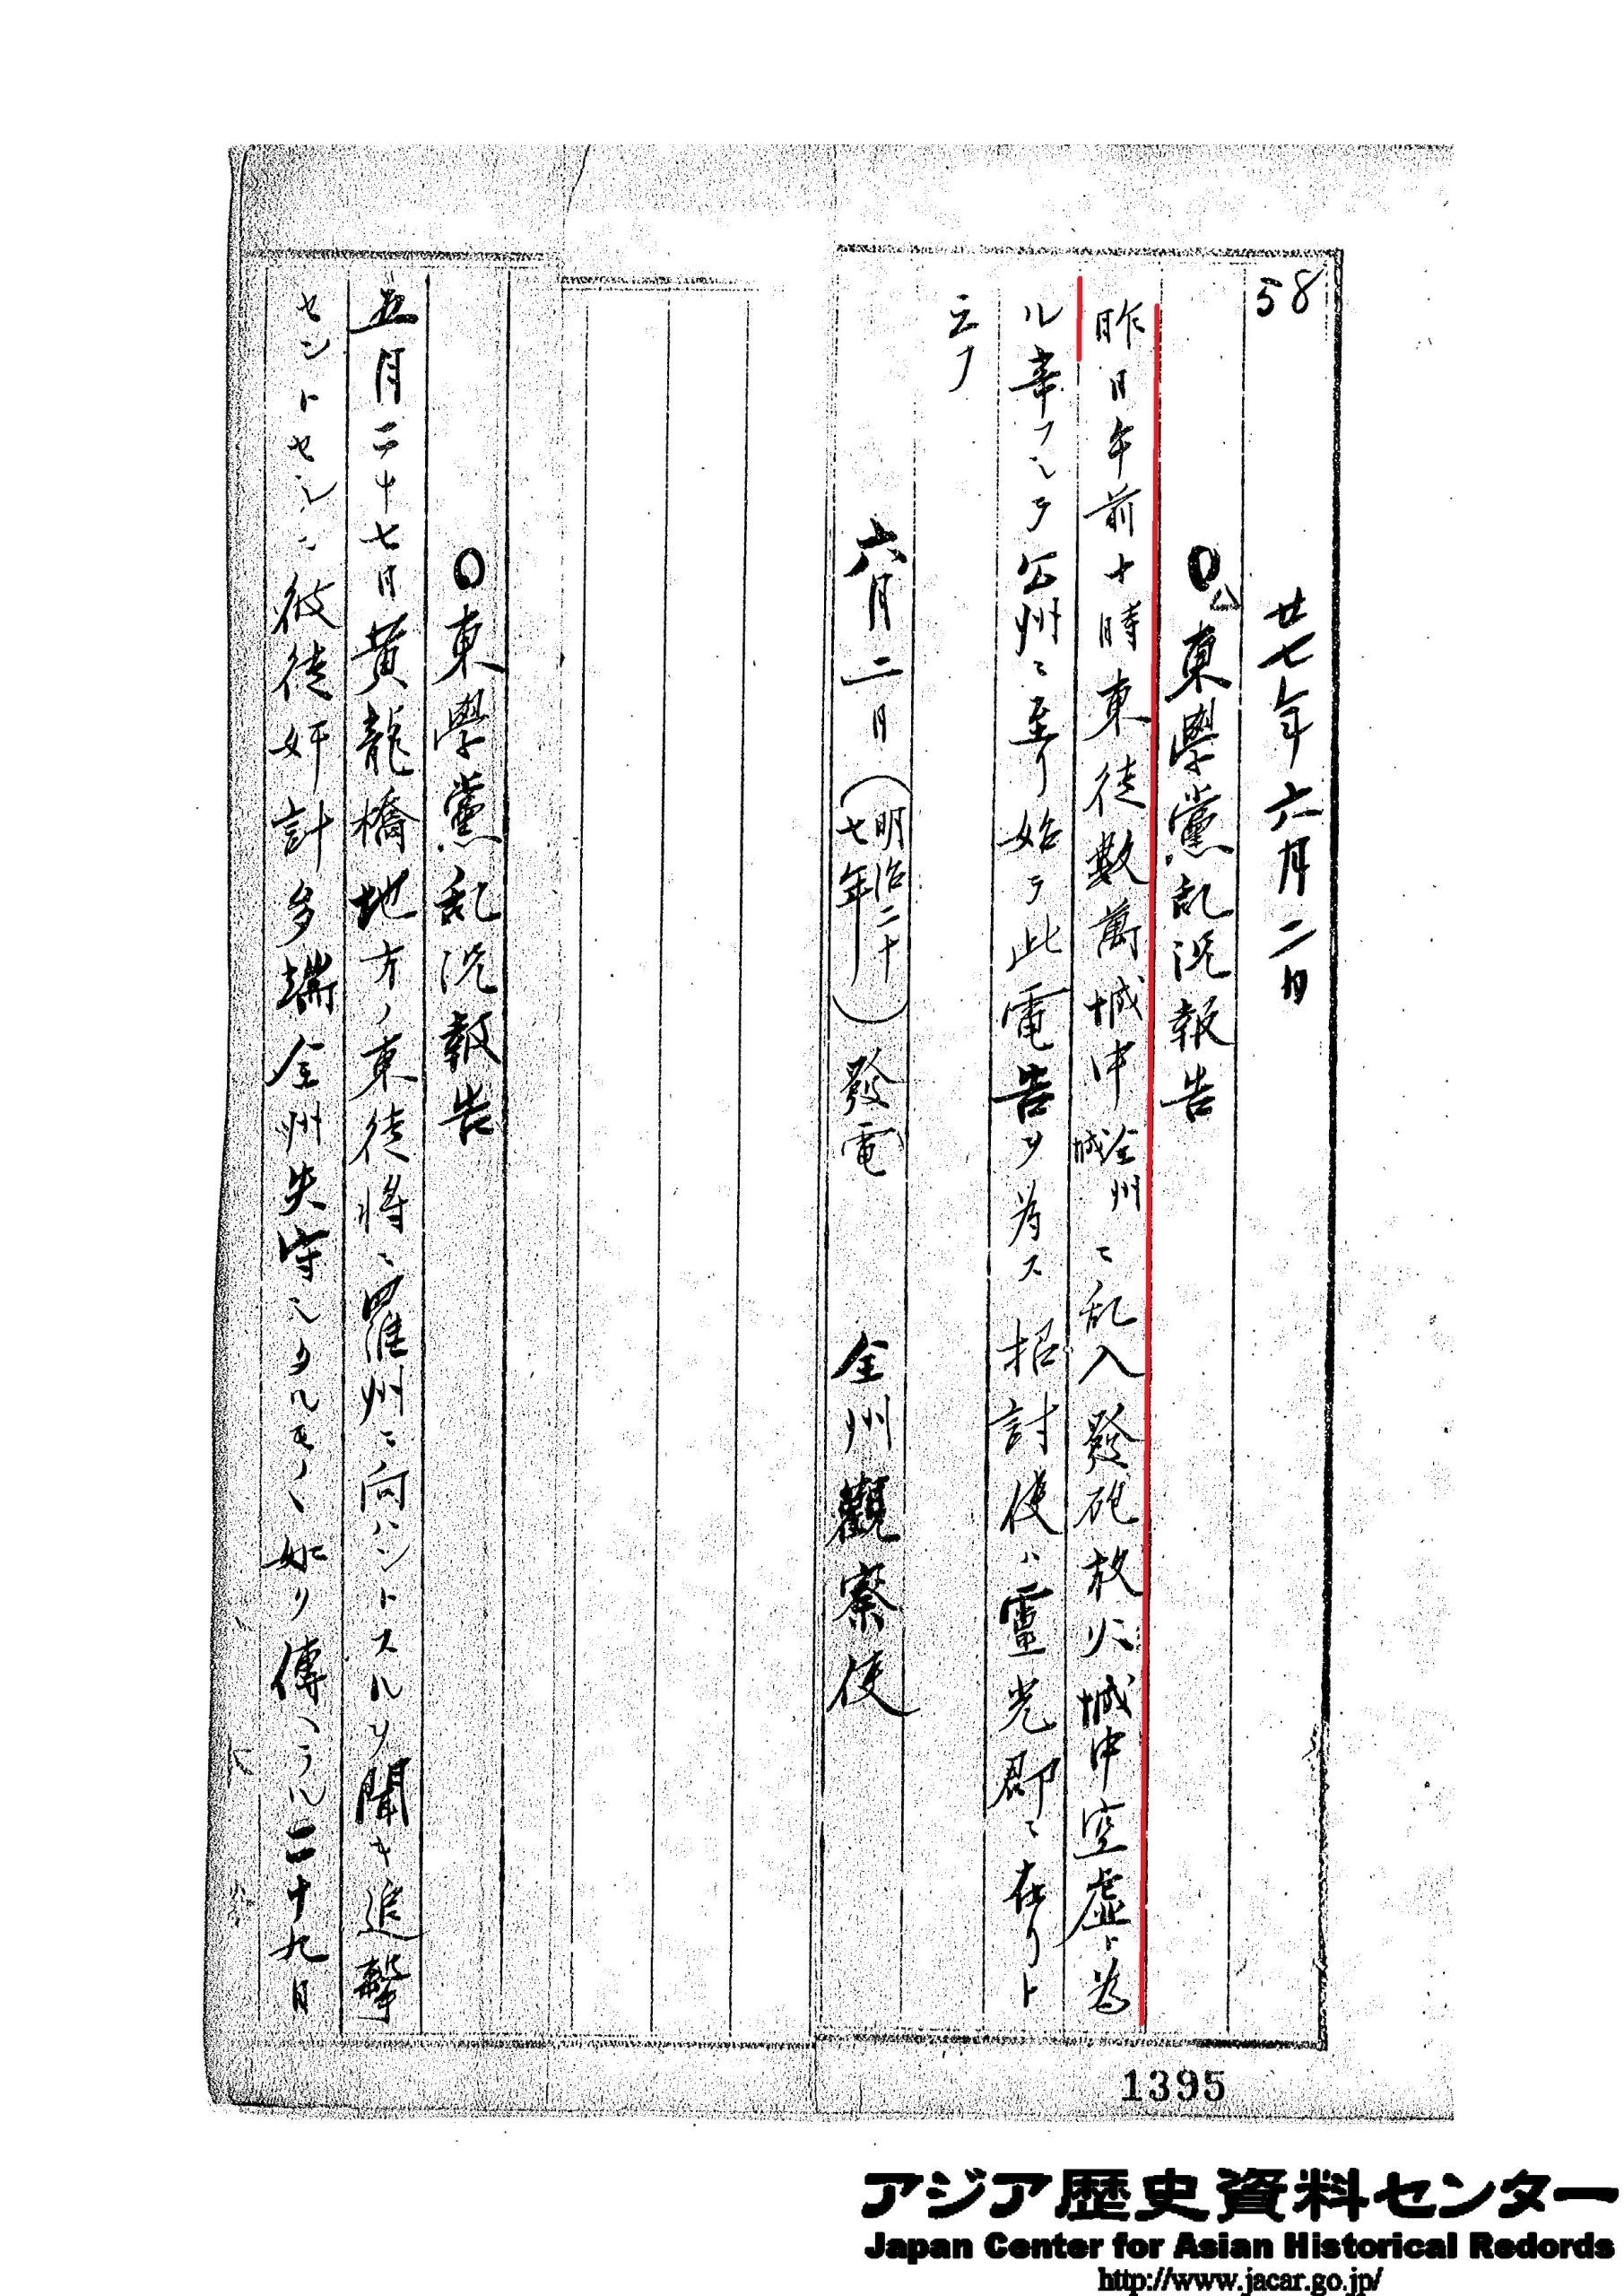 58
廿七年六月二日
○東學黨乱況報告
昨日午前十時東徒數萬城中全州城ニ乱入發砲放火城中空虚ト為
ル幸フシテ公州ニ至リ始テ此電告ヲ為ス招討使ハ靈光郡ニ在リト
云フ
六月二日（明治二十七年）發電 全州觀察使
○東學黨乱況報告
五月二十七日黄龍橋地方ノ東徒將ニ羅州ニ向ハントスルヲ聞キ追撃
セントセシニ彼徒奸計多端全州失守シタルモノヽ如リ傳ヘラル二十九日
1395
アジア歴史資料センター
Japan Center for Asian Historical Redords
http://www.jacar.go.jp/